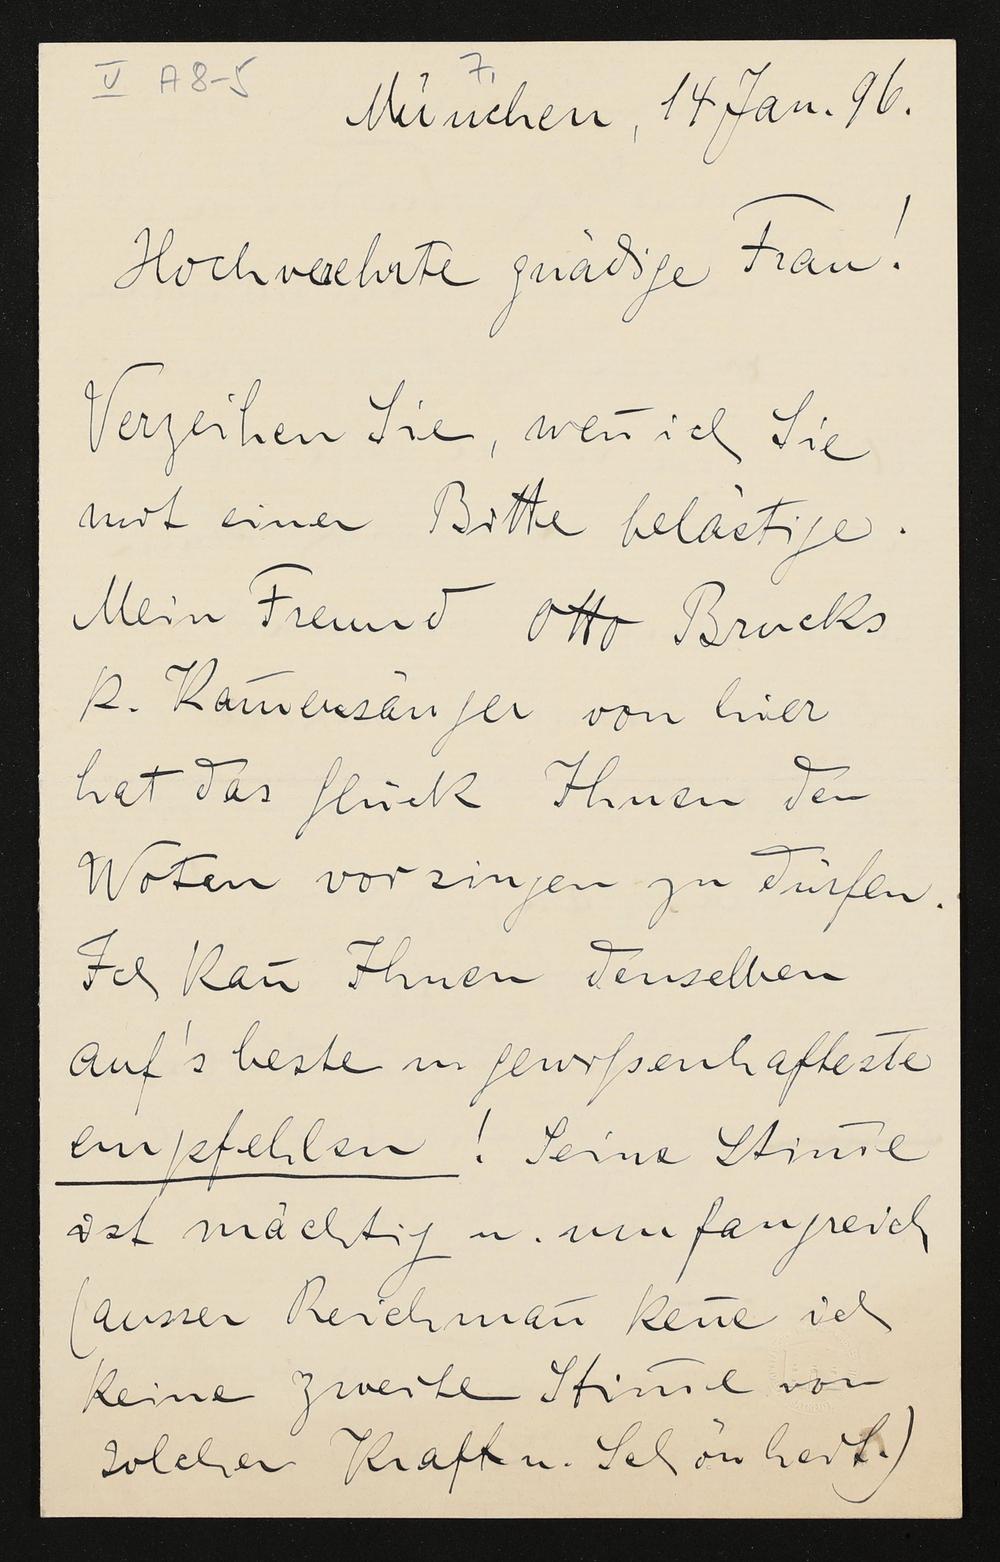 V A8-5 7,
München, 14 Jan. 96.
Hochverehrte gnädige Frau!
Verzeihen Sie, wen̄ ich Sie
mit einer Bitte belästige.
Mein Freund Otto Brucks
k. Kam̄ersänger von hier
hat das Glück Ihnen den
Wotan vorsingen zu dürfen.
Ich kan̄ Ihnen denselben
auf's beste u. gewißenhafteste
empfehlen! Seine Stim̄e
ist mächtig u. umfangreich
(ausser Reichman̄ ken̄e ich
keine zweite Stim̄e von
solcher Kraft u. Schönheit.)